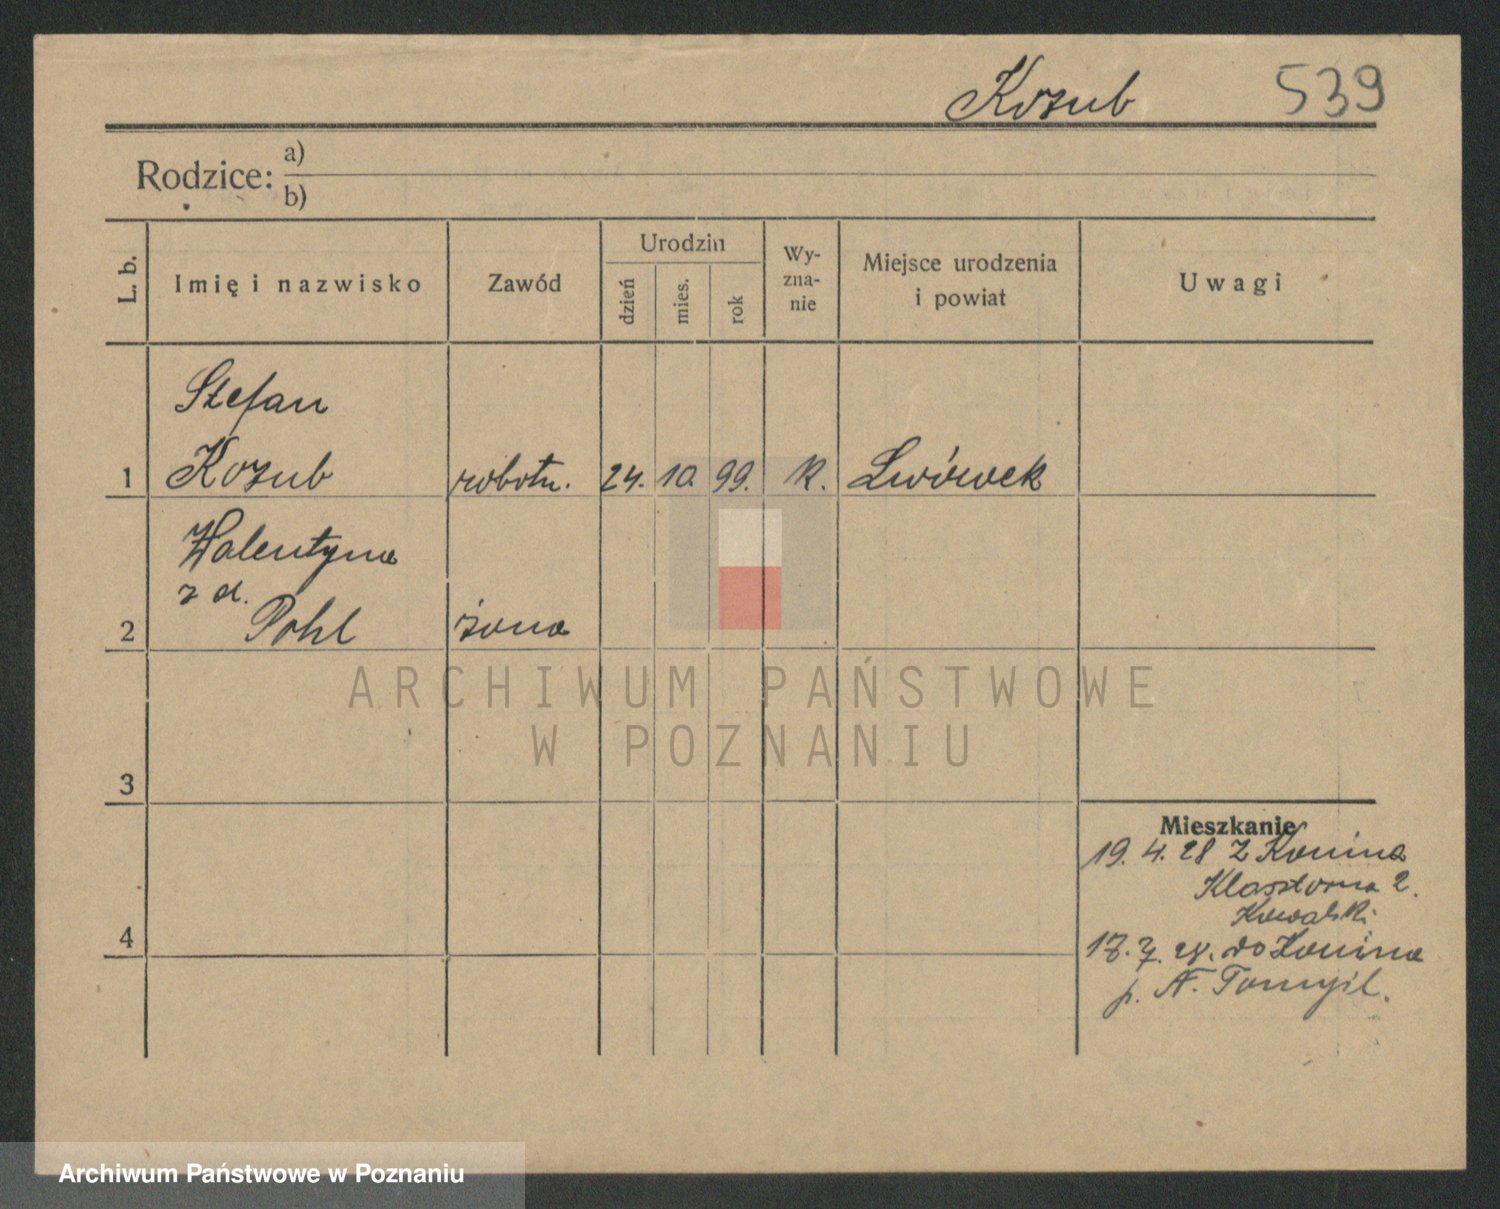 Kozub 539
Rodzice: a)
b)
L. b. Imię i nazwisko Zawód Urodzin dzień mies. rok Wy-zna-nie Miejsce urodzenia i powiat Uwagi
Stefan
1 Kozub robotn. 24. 10. 99. R. Lwówek
Walentyna
z d.
2 Pohl żona
ARCHIWUM PAŃSTWOWE
W POZNANIU
3
Mieszkanie
19. 4. 28 z Konina
Klasztorna 2.
Kowalski
4
17. 7. 28. do Konina
p. N. Tomyśl.
Archiwum Państwowe w Poznaniu